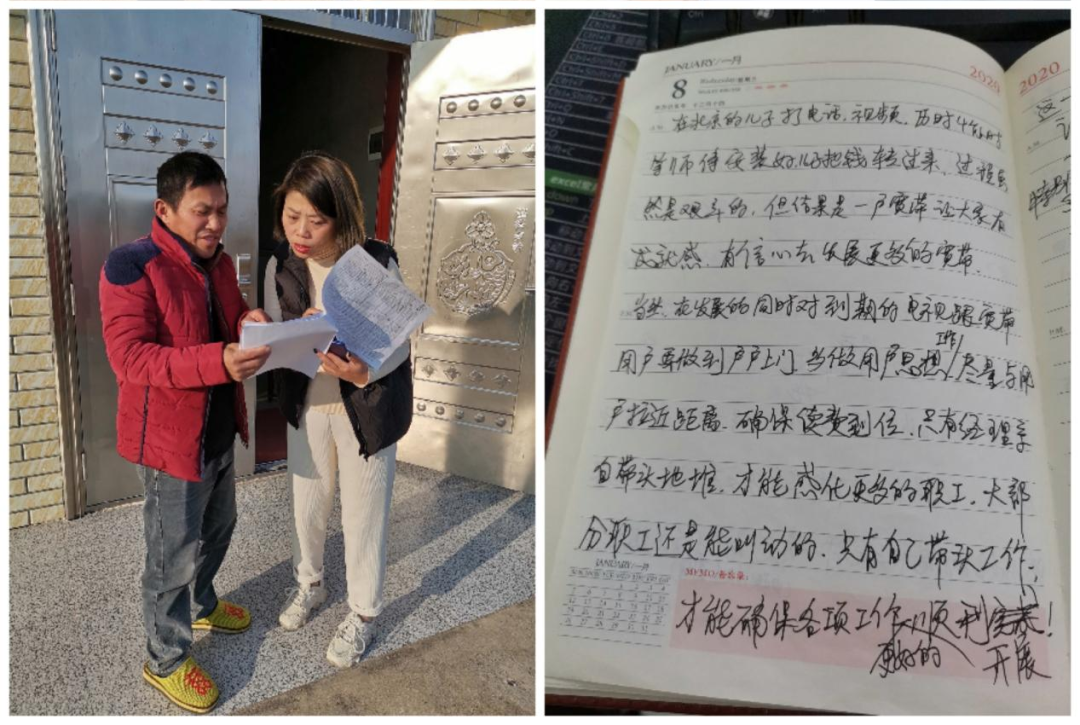 JANUARY/一月
2020
2020
8
Wednesday
在北京的儿子打电话,视频,历时4个小时
等师傅安装好儿子把钱转过来,过程虽
然是艰辛的,但结果是一户宽带让大家有
成就感,有信心去发展更多的宽带。
当然,在发展的同时对到期的电视跟宽带
工作
用户要做到户户上门,当做用户思想,尽量与用
户拉近距离,确保续费到位,只有经理亲
自带头地推,才能感化更多的职工,大部
分职工还是能叫动的,只有自己带头工作,
JANUARY/一月
MEMO/备忘录:
才能确保各项工作顺利
更好的
开展
这一